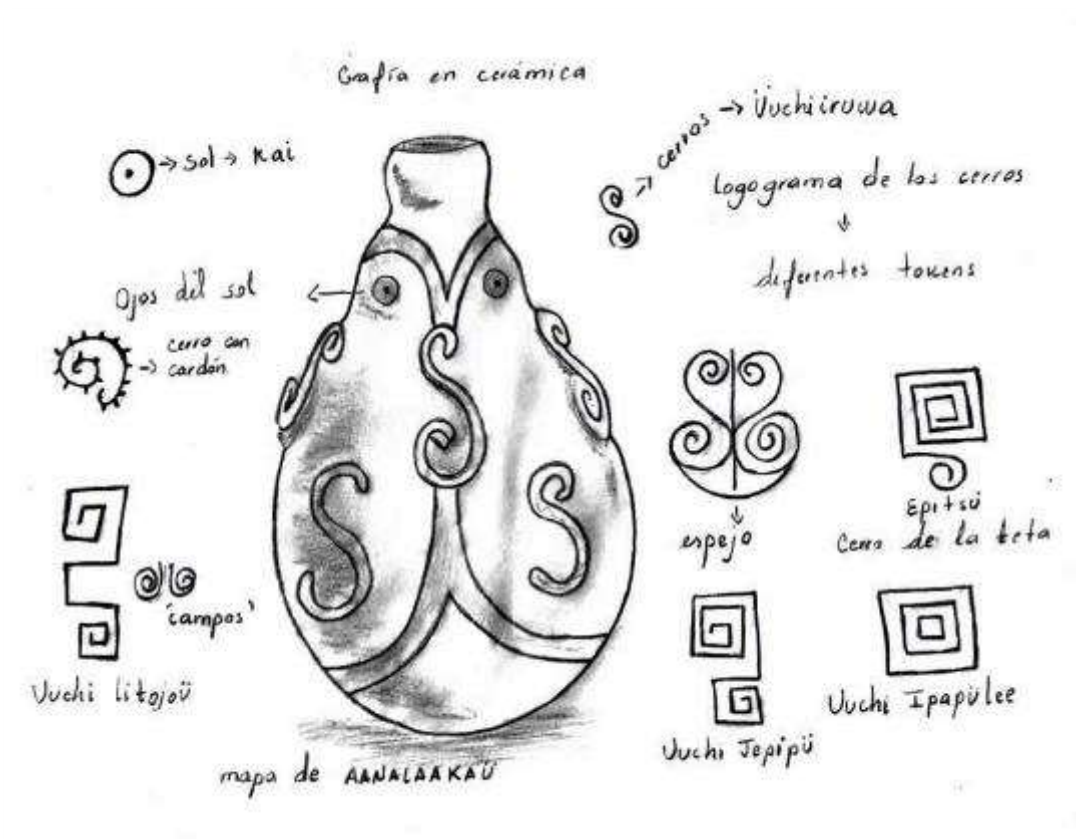 Grafía en cerámica
→ sol → Kai
cerros → Üuchiiruwa
logograma de los cerros
diferentes tokens
Ojos del sol
cerro con
cardón
espejo
Epitsü
Cerro de la teta
'campos'
Uuchi litojoü
Uuchi Jepipü
Uuchi Ipapülee
mapa de AANALAAKAÜ